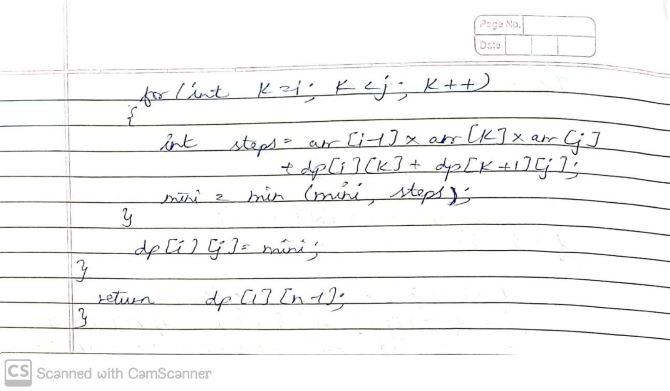 Page No.
Date
for (int K=i; K<j; K++)
{
int steps = arr[i-1] x arr[K] x arr[j]
+ dp[i][K] + dp[K+1][j];
mini = min (mini, steps);
}
dp[i][j] = mini;
}
return dp[1][n-1];
}
CS Scanned with CamScanner